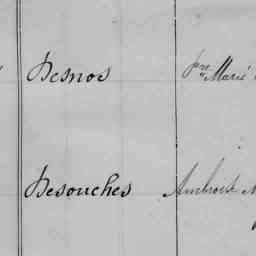 Desnos Jn Marie
Desouches Ambroise